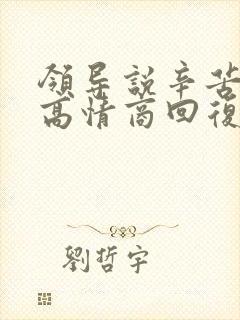 領导説辛苦
高情商回復
劉哲宇